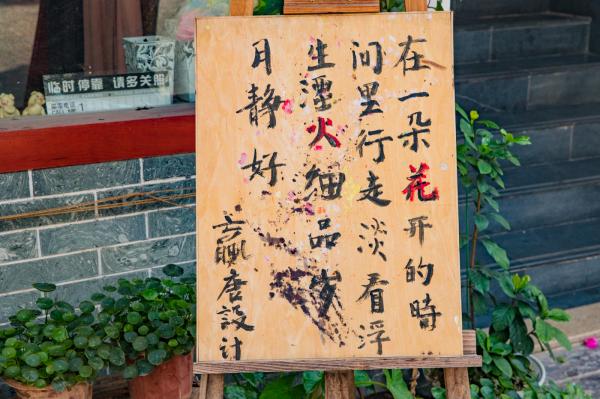 在一朵花开的時
间里行走淡看浮
生煙火细品岁
月静好
唐設计
临时停靠 请多关照
CALL
1